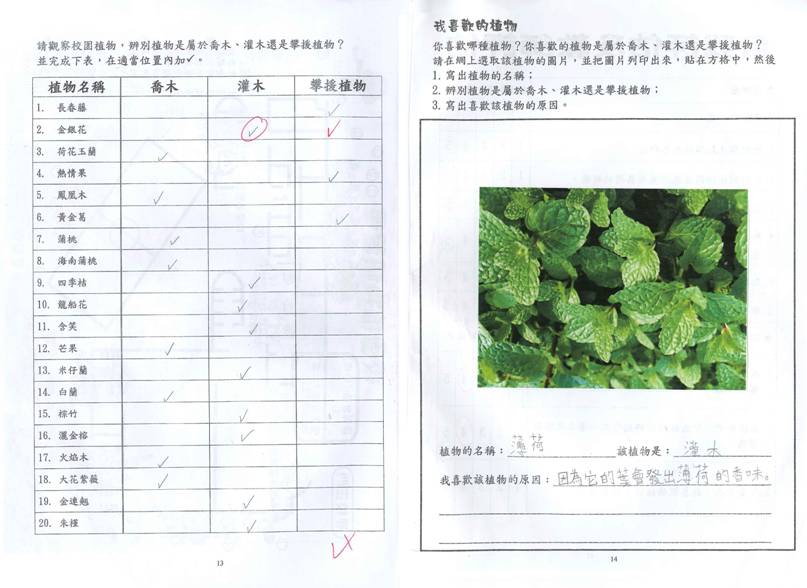 請觀察校園植物，辨別植物是屬於喬木、灌木還是攀援植物？
並完成下表，在適當位置內加✓。
植物名稱 喬木 灌木 攀援植物
1. 長春藤 ✓
2. 金銀花 ✓ ✓
3. 荷花玉蘭 ✓
4. 熱情果 ✓
5. 鳳凰木 ✓
6. 黃金葛 ✓
7. 蒲桃 ✓
8. 海南蒲桃 ✓
9. 四季桔 ✓
10. 龍船花 ✓
11. 含笑 ✓
12. 芒果 ✓
13. 米仔蘭 ✓
14. 白蘭 ✓
15. 棕竹 ✓
16. 灑金榕 ✓
17. 火焰木 ✓
18. 大花紫薇 ✓
19. 金連翹 ✓
20. 朱槿 ✓
13
我喜歡的植物
你喜歡哪種植物？你喜歡的植物是屬於喬木、灌木還是攀援植物？
請在網上選取該植物的圖片，並把圖片列印出來，貼在方格中，然後
1. 寫出植物的名稱；
2. 辨別植物是屬於喬木、灌木還是攀援植物；
3. 寫出喜歡該植物的原因。
植物的名稱：薄荷 該植物是：灌木
我喜歡該植物的原因：因為它的葉會發出薄荷的香味。
14